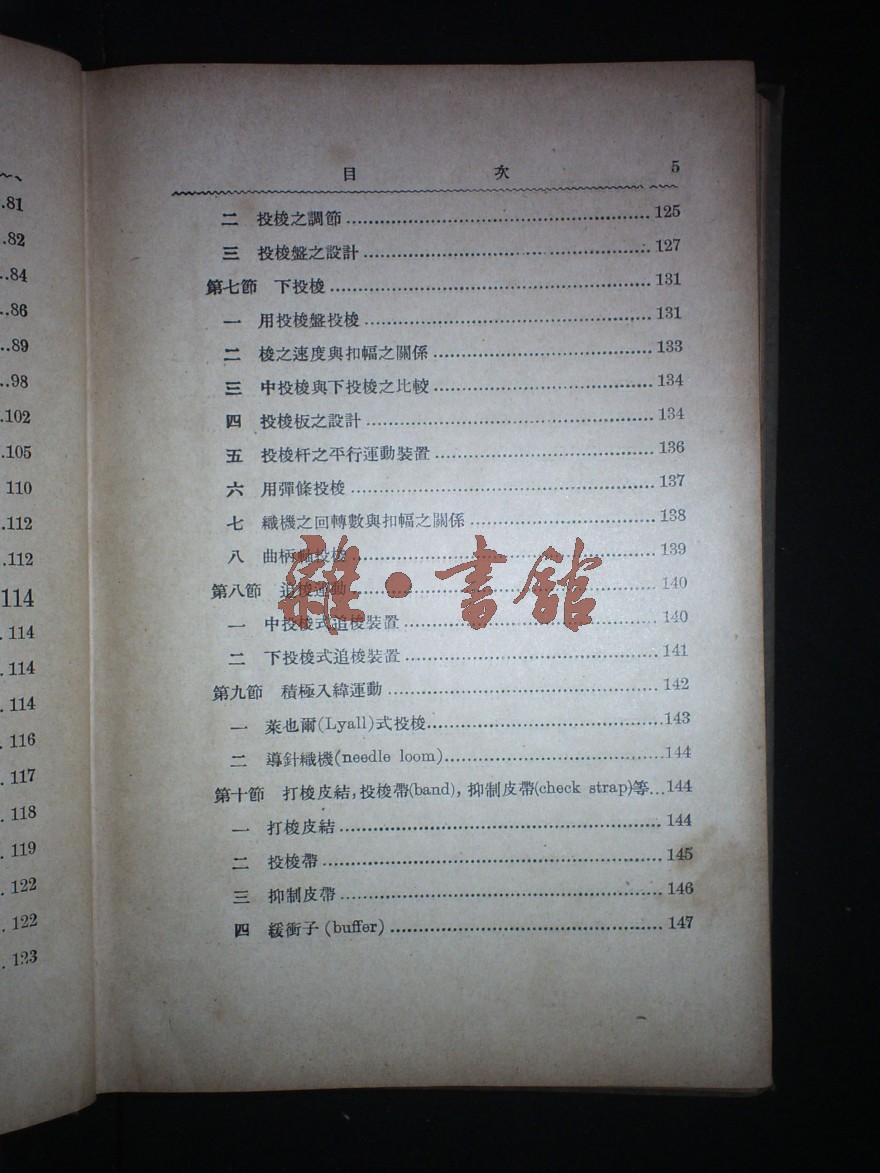 .81
.82
..84
..86
..89
..98
.102
.105
110
.112
.112
114
. 114
. 114
. 114
. 116
. 117
. 118
. 119
. 122
. 122
. 123
目 次 5
二 投梭之調節 125
三 投梭盤之設計 127
第七節 下投梭 131
一 用投梭盤投梭 131
二 梭之速度與扣幅之關係 133
三 中投梭與下投梭之比較 134
四 投梭板之設計 134
五 投梭杆之平行運動裝置 136
六 用彈條投梭 137
七 織機之回轉數與扣幅之關係 138
八 曲柄軸投梭 139
第八節 追梭運動 140
一 中投梭式追梭裝置 140
二 下投梭式追梭裝置 141
第九節 積極入緯運動 142
一 萊也爾(Lyall)式投梭 143
二 導針織機(needle loom) 144
第十節 打梭皮結,投梭帶(band), 抑制皮帶(check strap)等 144
一 打梭皮結 144
二 投梭帶 145
三 抑制皮帶 146
四 緩衝子 (buffer) 147
雜·書館